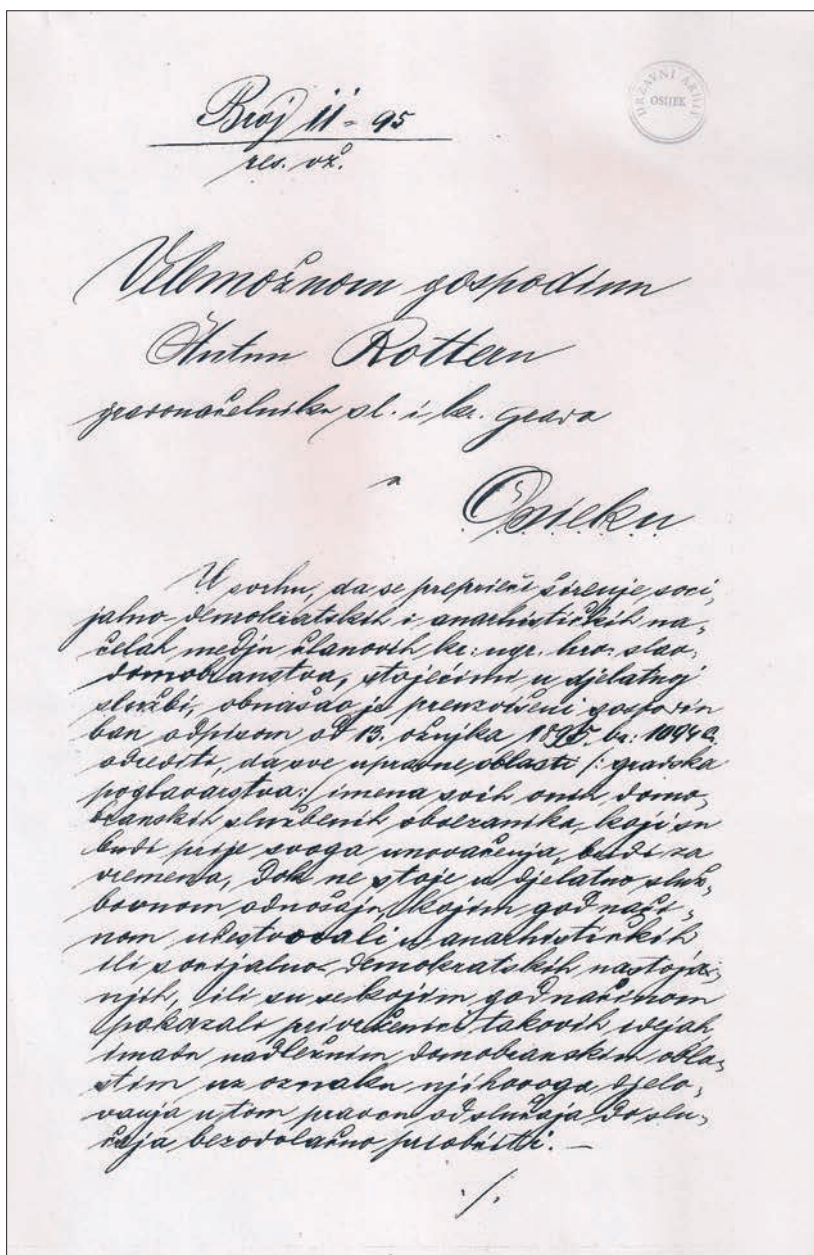 Broj 11 - 95
res. vž.
DRŽAVNI ARHIV
OSIJEK
Velemožnom gospodinu
Antun Rotteru
gradonačelniku sl. i kr. grada
u
Osieku
U svrhu, da se prepriječi širenje soci,
jalno-demokratskih i anarhističkih na,
čelah medju članovih kr: ugr. hrv: slav.
domobranstva, stojećimi u djelatnoj
službi, obnašao je preuzvišeni gospodin
ban odpisom od 13. ožujka 1895. br: 1094
odrediti, da sve upravne oblasti /: gradska
poglavarstva:/ imena svih onih domo,
branskih službenih obvezanika, koji su
budi prije svoga unovačenja, budi za
vremena, dok ne stoje u djelatno služ,
bovnom odnošaju, kojim god nači,
nom učestvovali u anarhističkih
ili socijalno-demokratskih nastoja,
njih, ili su se kojim god načinom
pokazali privrženici takovih idejah,
imadu nadležnim domobranskim obla,
stim uz oznaku njihovoga djelo,
vanja u tom pravcu od slučaja do slu,
čaja bezodvlačno priobćiti. —
./.